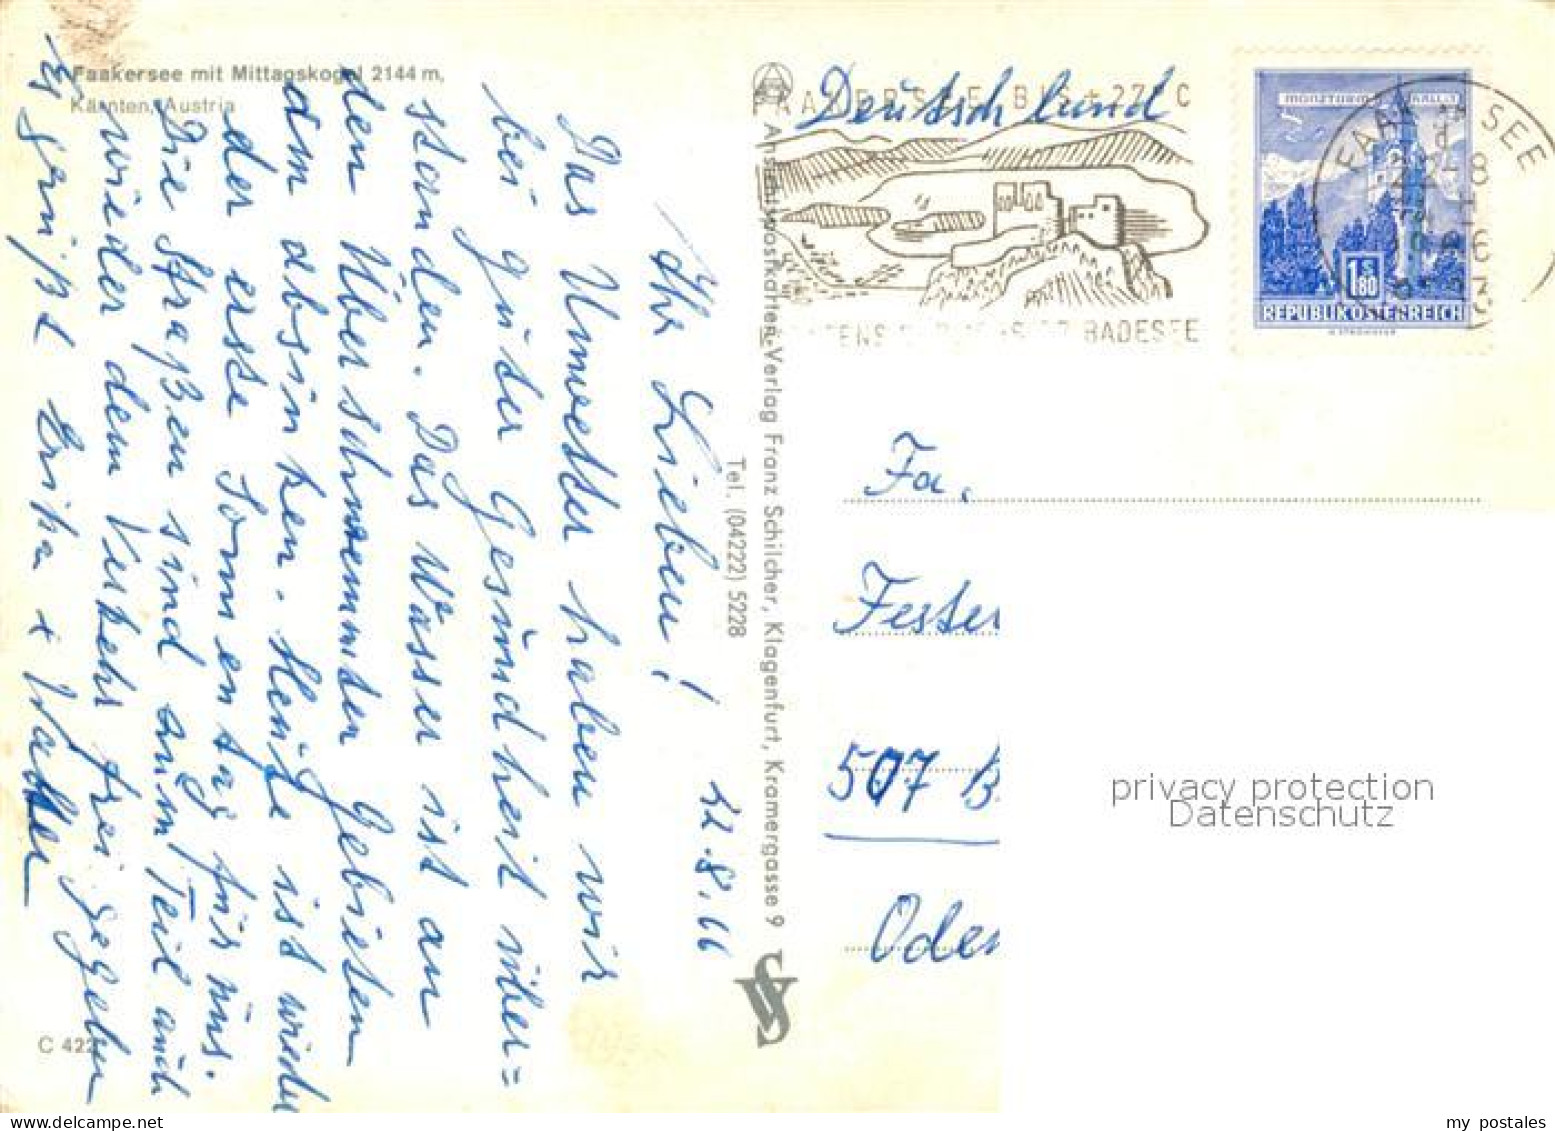 Faakersee mit Mittagskogel 2144 m,
Kärnten, Austria
22.8.66
Ihr Lieben!
Das Unwetter haben wir
bei guter Gesundheit über=
standen. Das Wasser ist an
den Überschwemmten Gebieten
am absinken. Heute ist wieder
der erste Sonnentag für uns.
Die Straßen sind zum Teil auch
wieder dem Verkehr frei gegeben
Es grüßt Erika + Walter
C 422
Ansichtspostkarten-Verlag Franz Schilcher, Klagenfurt, Kramergasse 9
Tel. (04222) 5228
Deutschland
BIS + 27° C
BADESEE
FAAK AM SEE
22-8
MÜNZTURM HALL i. T.
1 S 80
REPUBLIK ÖSTERREICH
Fa.
Fester
507 B
Oden
privacy protection
Datenschutz
my postales